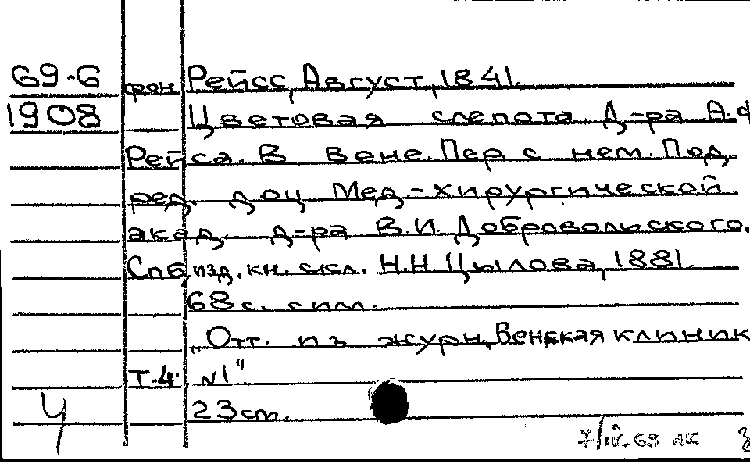 69-6 фон Рейсс, Август, 1841.
1908 Цветовая слепота Д-ра А.Ф
Рейсса. В Вене. Пер с нем. Под
ред. доц Мед-хирургической
акад. д-ра В.И. Добровольского.
Спб, изд. кн. скл. Н.Н Цылова, 1881
68 с. с илл.
"Отт. из журн. Венская клиник
Т.4. N1"
Ч 23 см.
7/IV.69 лк